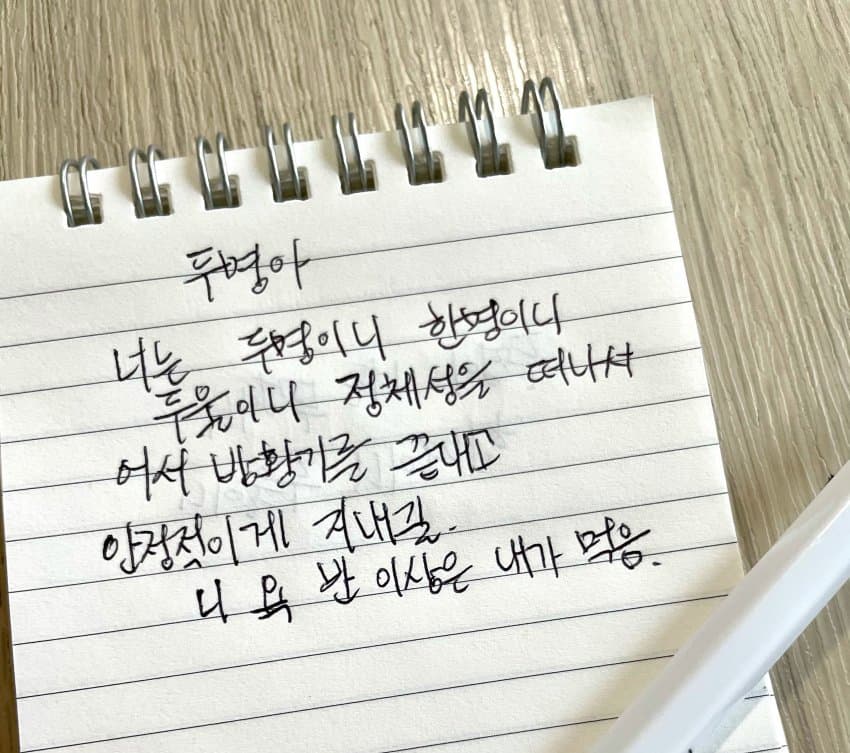 두명아
너는 두명이니 한명이니
두울이니 정체성을 떠나서
어서 방황기를 끝내고
안정적이게 지내길.
니 욕 반 이상은 내가 먹음.